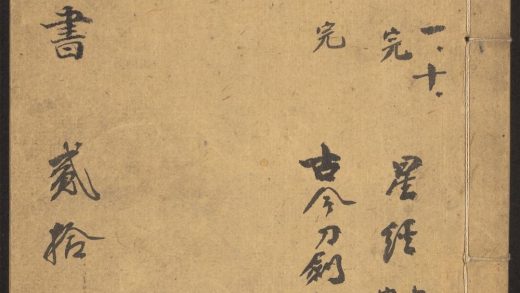 一、十、
完 星經
完 古今刀劍
書 貳拾